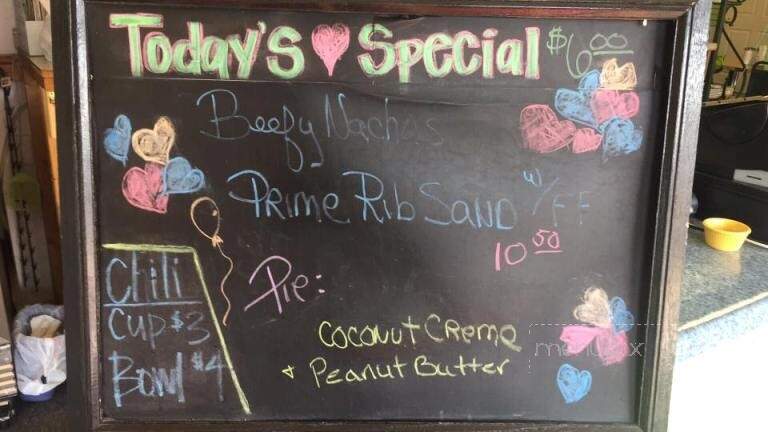 Today's Special $6.00
Beefy Nachos
Prime Rib Sand w/FF
10 50
Pie:
Coconut Creme
+ Peanut Butter
Chili
Cup $3
Bowl $4
menupix